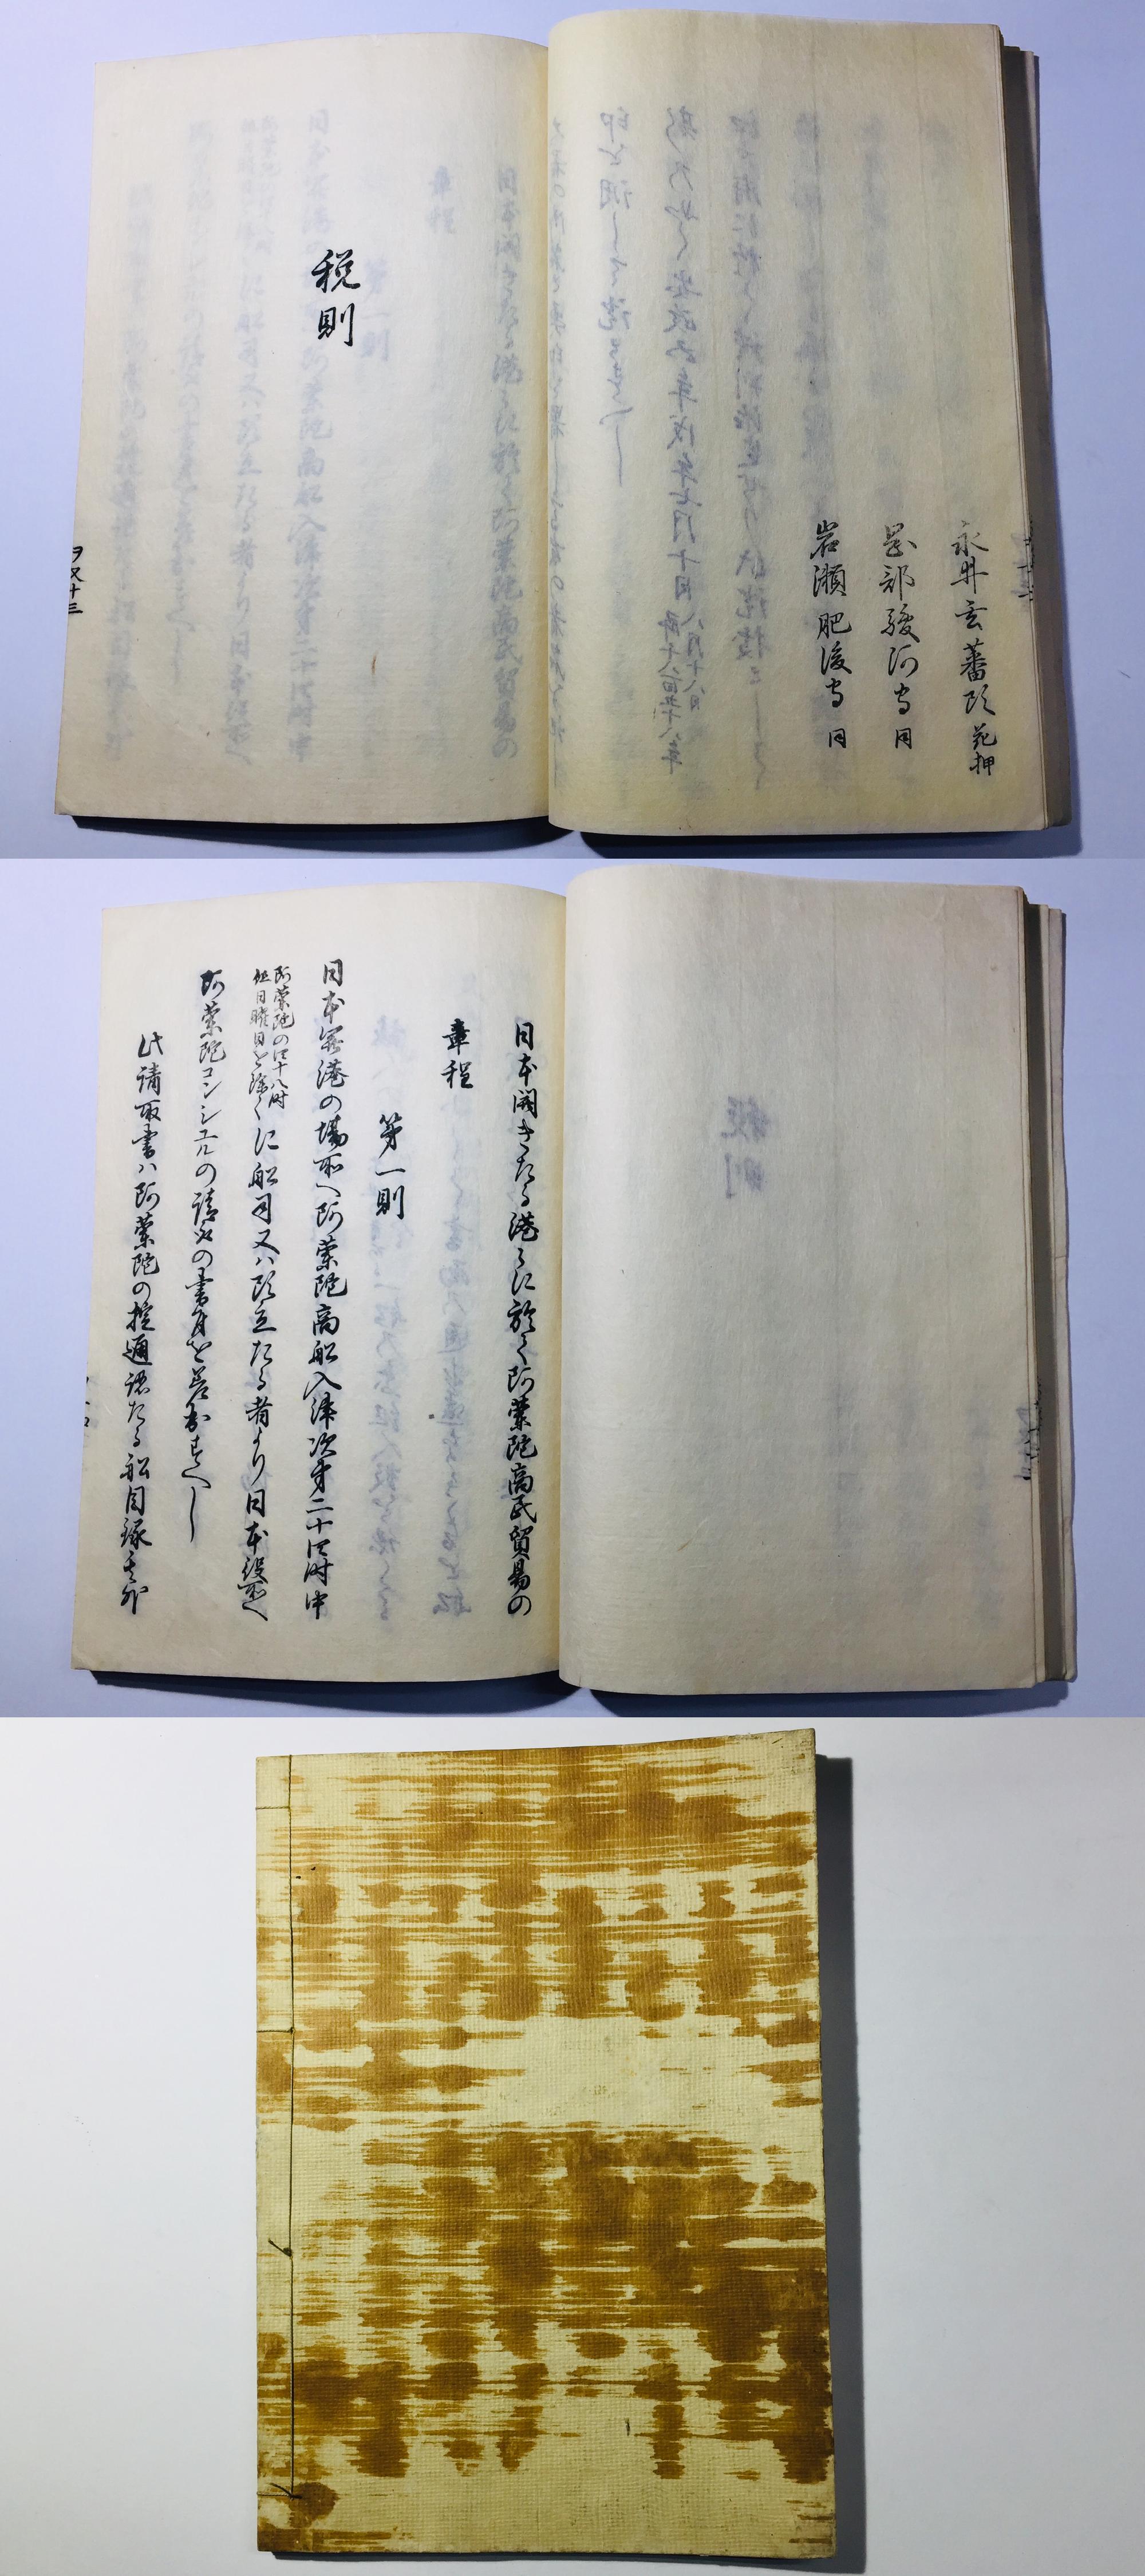 永井玄蕃頭 花押
岡部駿河守 同
岩瀬肥後守 同
税則
ヲ又十三
日本開きたる港々に於て阿蘭陀商民貿易の
章程
第一則
日本開港の場所へ阿蘭陀商船入津次第二十四時中
阿蘭陀の四十八時
但日曜日を除く
に船司又ハ頭立たる者より日本役所へ
阿蘭陀コンシユルの請取の書付を差出すへし
此請取書ハ阿蘭陀の掟通認たる船目録其外